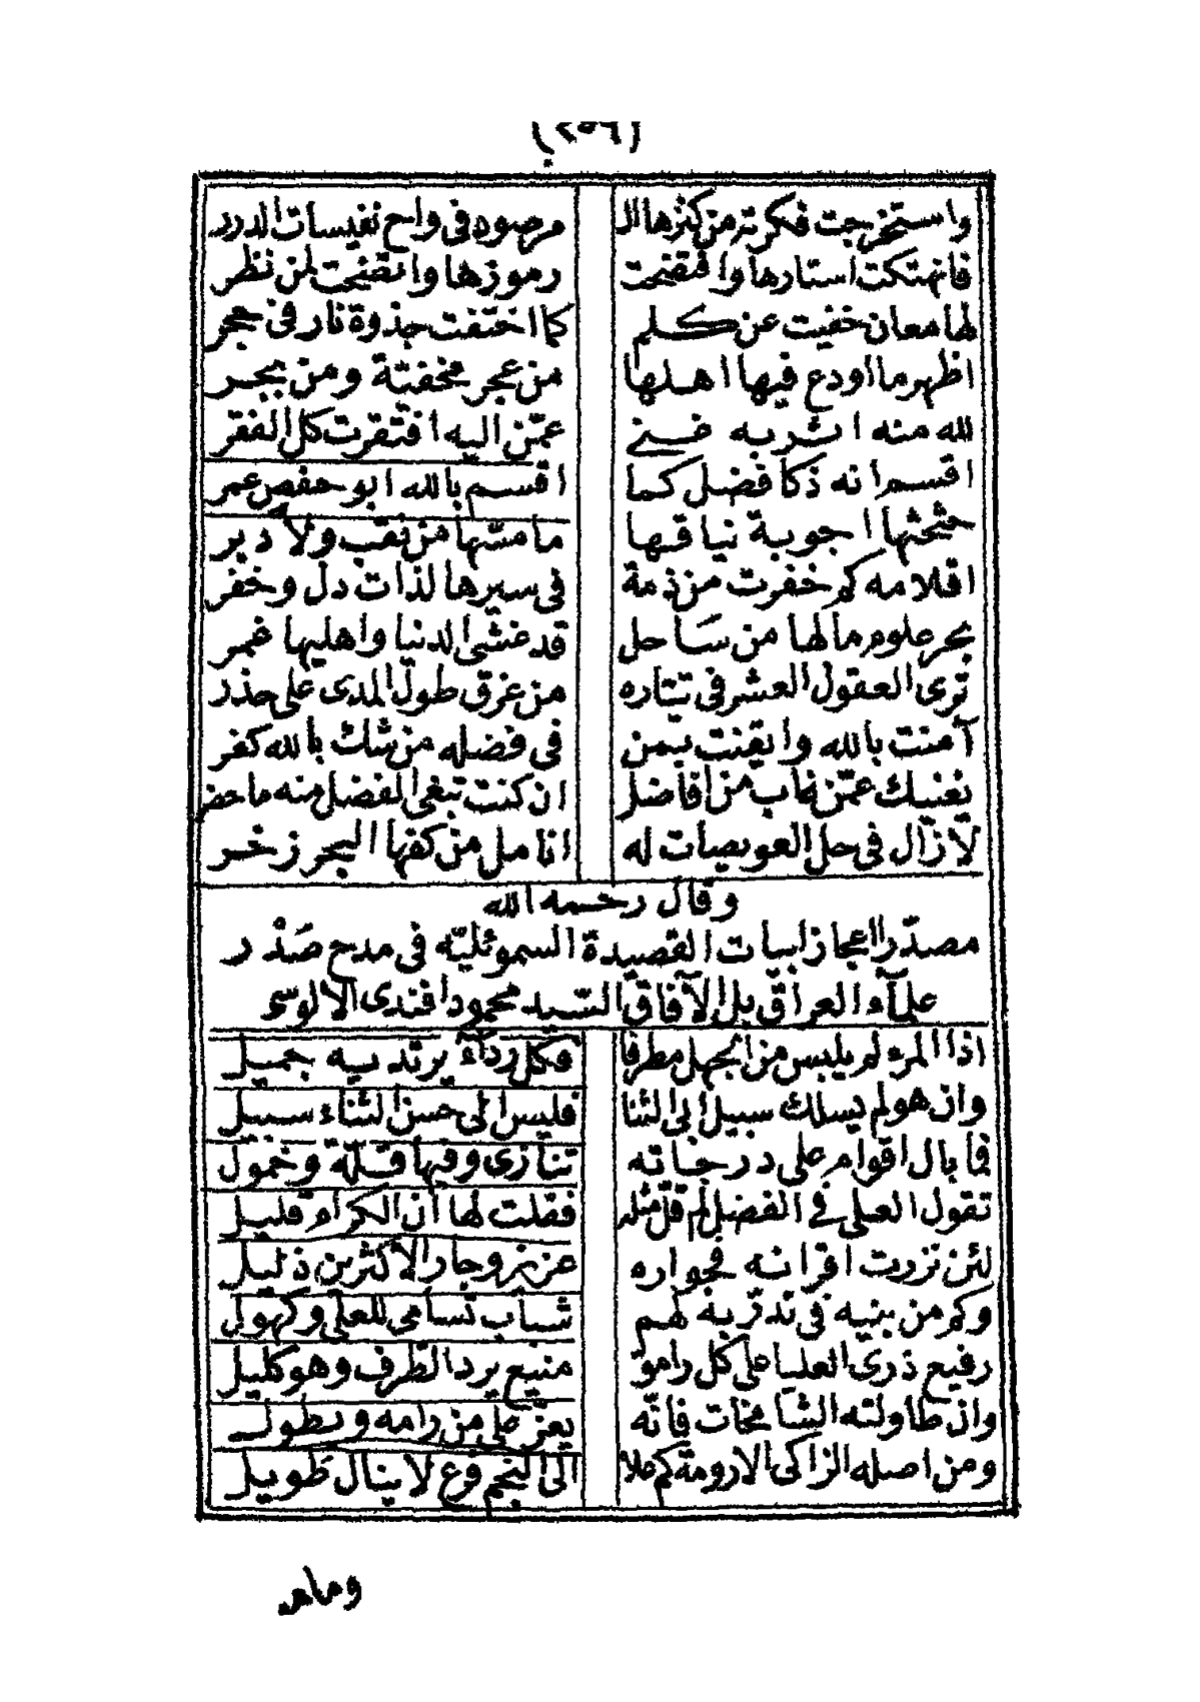 (٢٥٦)
واستخرجت فكرته من كنزها ال مرصود في واح نفيسات الدرر
فانهتكت استارها وافتضحت رموزها واتضحت لمن نظر
لها معان خفيت عن كلم كما اختفت جذوة نار في حجر
اظهر ما اودع فيها اهلها من عجر مخفية ومن بجر
لله منه اثر به غني عمّن اليه افتقرت كل الفقر
اقسم انه ذكا فضل كما اقسم بالله ابو حفص عمر
حثحثها اجوبة نياقها ما مسّها من نقب ولا دبر
اقلامه كم خفرت من ذمة في سيرها لذات دل وخفر
بحر علوم مالها من ساحل قد غشى الدنيا واهليها غمر
ترى العقول العشر في تياره من غرق طول المدى على حذر
آمنت بالله وايقنت بمن في فضله من شك بالله كفر
يغنيك عمّن غاب من افاضل ان كنت تبغى الفضل منه ما حضر
لا زال في حل العويصات له انامل من كفها البحر زخر
وقال رحمه الله
مصدّرا اعجاز ابيات القصيدة السموئليّه في مدح صَدْر
علمآء العراق بل الآفاق السّيد محمود افندى الالوسي
اذا المرء لم يلبس من الجهل مطرفا فكل ردآء يرتديه جميل
وان هو لم يسلك سبيلا الى الثنا فليس الى حسن الثناء سبيل
فما بال اقوام على درجاته تنازى وفيها قلة وخمول
تقول العلى في الفضل لم قلّ مثله فقلت لها ان الكرام قليل
لئن نزرت اقرانه فجواره عزيز وجار الأكثرين ذليل
وكم من بنيه في تدرّبه لهم شباب تسامى للعلى وكهول
رفيع ذرى العليا على كل رامق منيع يرد الطرف وهو كليل
وان طاولته الشامخات فانّه يعزّ على من رامه ويطول
ومن اصله الزاكى الارومة كم علا الى النجم فرع لا ينال طويل
وما